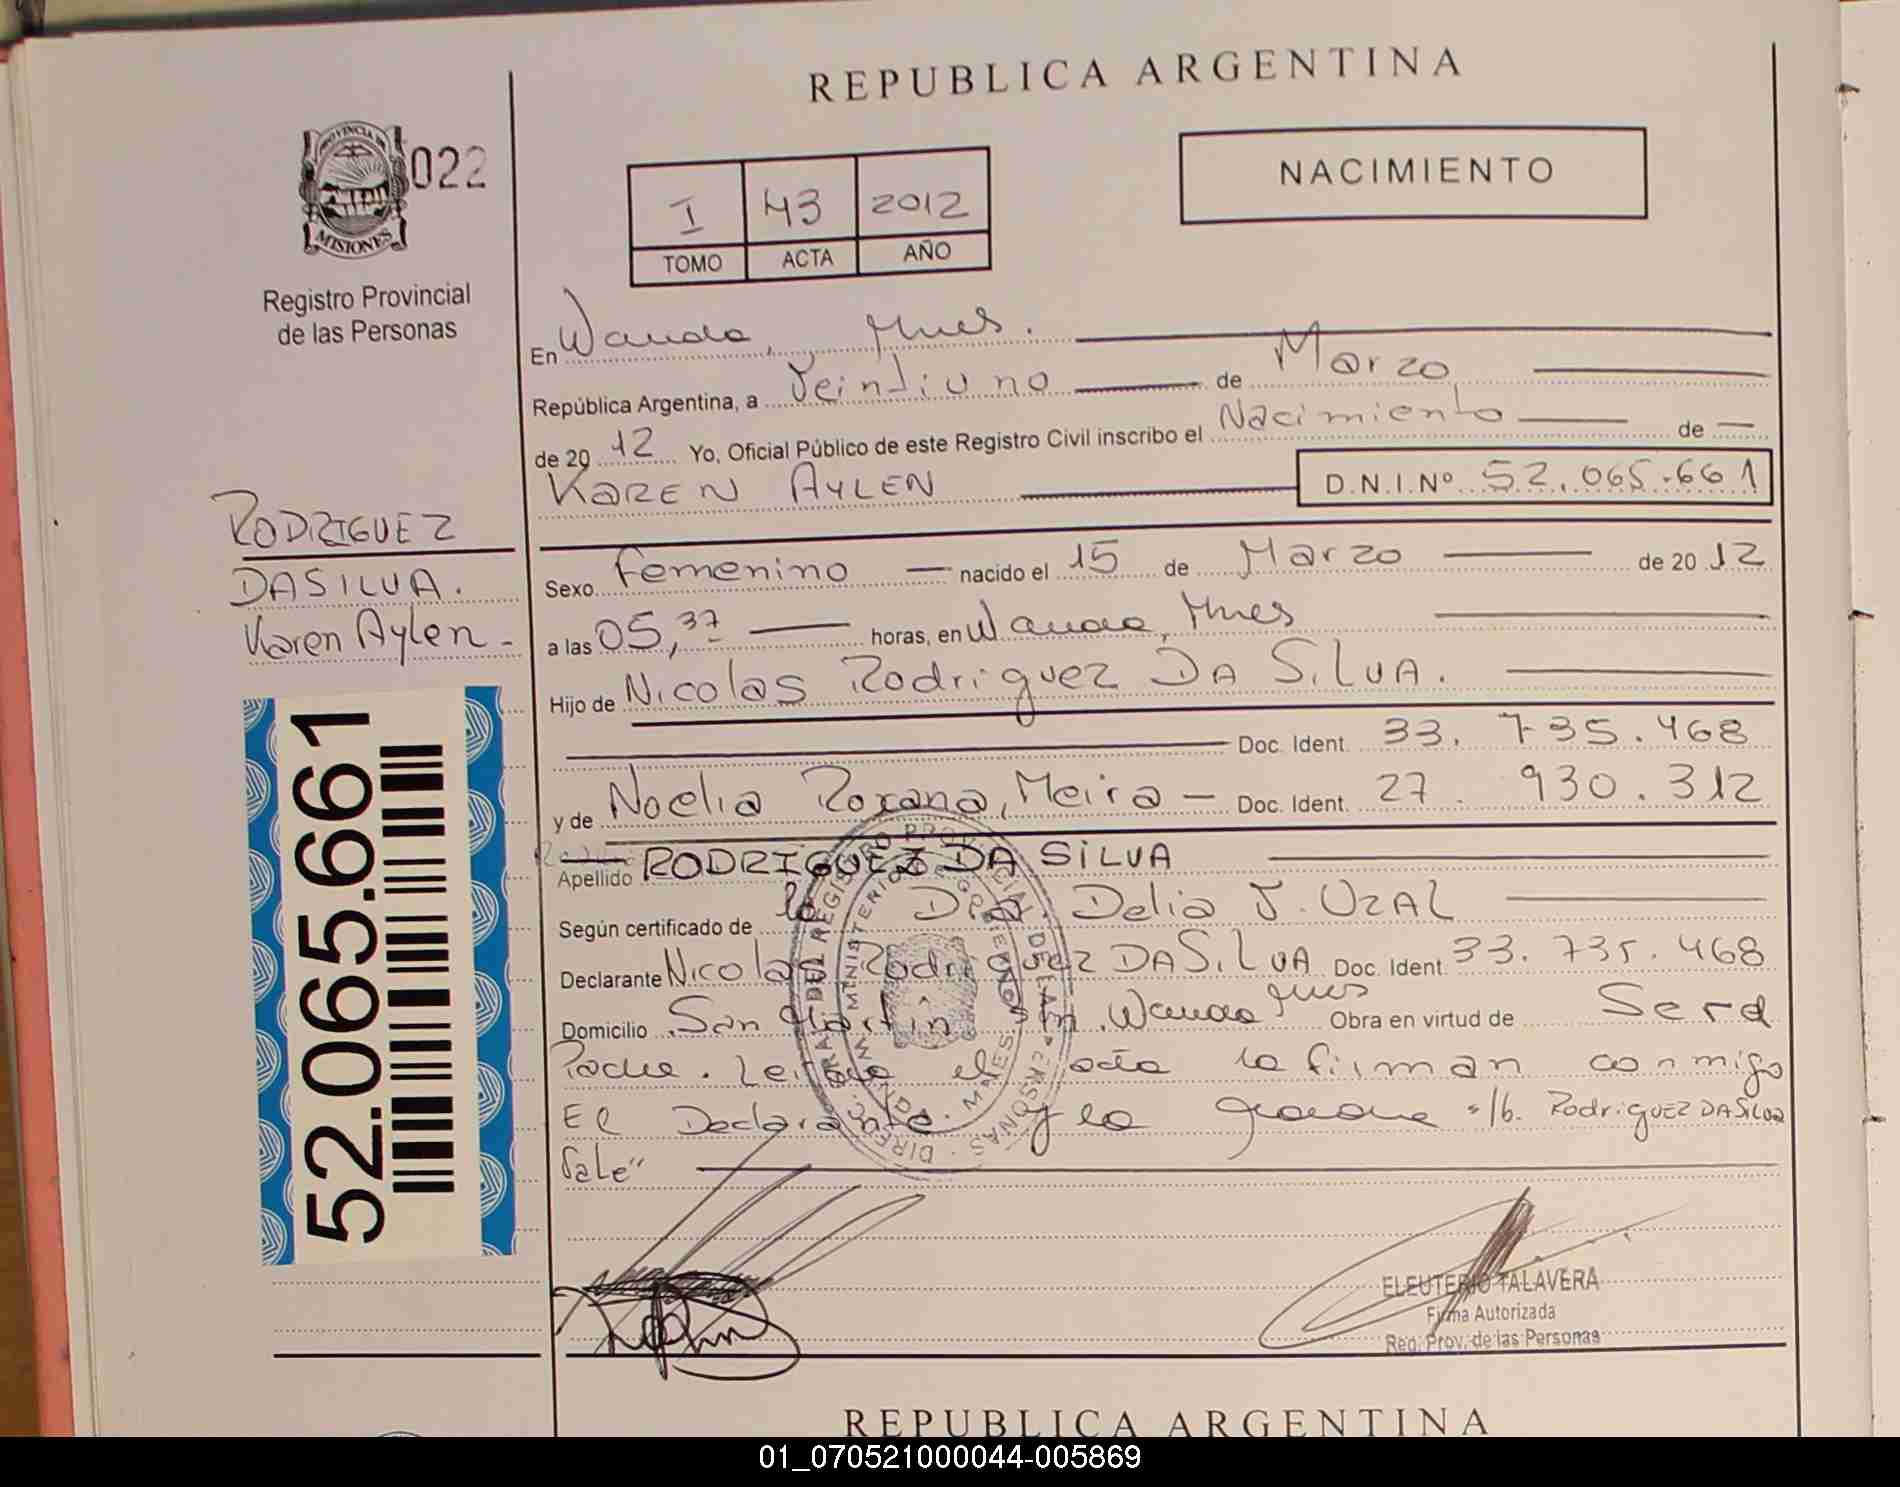 REPUBLICA ARGENTINA
PROVINCIA DE
MISIONES
022
Registro Provincial
de las Personas
NACIMIENTO
I 43 2012
TOMO ACTA AÑO
En Wanda, Mnes.
República Argentina, a Veintiuno de Marzo
de 2012 Yo, Oficial Público de este Registro Civil inscribo el Nacimiento de
KAREN AYLEN D.N.I.Nº 52.065.661
RODRIGUEZ
DASILVA.
Karen Aylen -
Sexo Femenino nacido el 15 de Marzo de 2012
a las 05,37 horas, en Wanda, Mnes
Hijo de Nicolas Rodriguez DA SILVA.
Doc. Ident. 33.735.468
y de Noelia Roxana, Meira - Doc. Ident. 27.930.312
Apellido RODRIGUEZ DA SILVA
Según certificado de la Dra Delia J. UZAL
Declarante Nicolas Rodriguez DASILVA Doc. Ident. 33.735.468
Domicilio San Martin s/n Wanda Mnes Obra en virtud de Ser el
Padre. Leida el acta la firman conmigo
El Declarante y la s/b. Rodriguez DASILVA
Vale"
52.065.661
ELEUTERIO TALAVERA
Firma Autorizada
Reg. Prov. de las Personas
REPUBLICA ARGENTINA
01_070521000044-005869